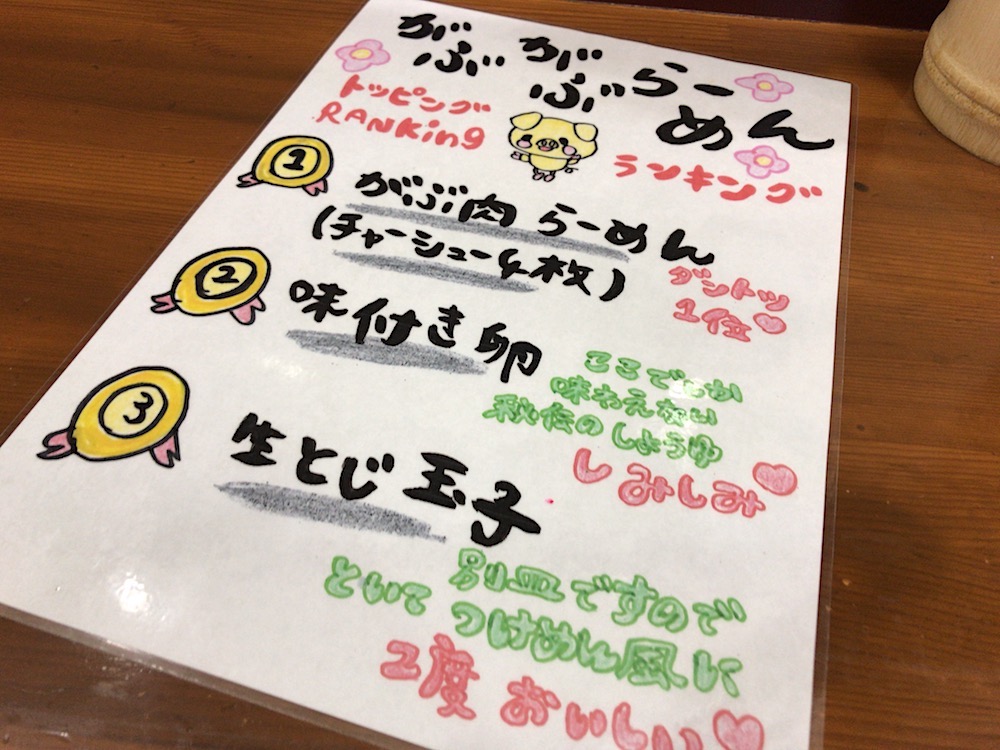 がぶがぶらーめん
トッピング
RANKing
ランキング
1
がぶ肉らーめん
(チャーシュー4枚)
ダントツ
1位
2
味付き卵
ここでしか
味わえない
秘伝のしょうゆ
しみしみ
3
生とじ玉子
別皿ですので
といてつけめん風に
2度おいしい